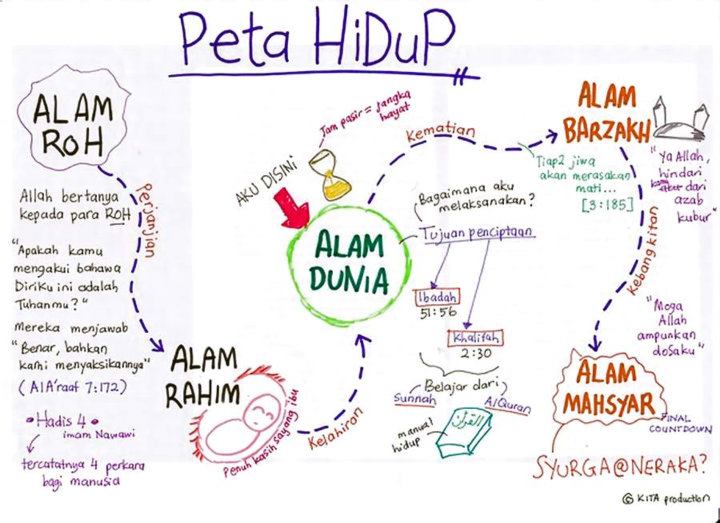 Peta HiDuP
ALAM
ROH
Allah bertanya
kepada para ROH
"Apakah kamu
mengakui bahawa
Diriku ini adalah
Tuhanmu?"
mereka menjawab
"Benar, bahkan
kami menyaksikannya"
(Al A'raaf 7:172)
• Hadis 4 •
imam Nawawi
tercatatnya 4 perkara
bagi manusia
Perjanjian
ALAM
RAHIM
Penuh kasih sayang ibu
Kelahiran
AKU DISINI
Jam pasir = jangka
hayat
ALAM
DUNIA
Bagaimana aku
melaksanakan?
Tujuan penciptaan
Ibadah
51:56
Khalifah
2:30
Belajar dari
Sunnah
Al Quran
manual
hidup
القرآن
Kematian
Tiap2 jiwa
akan merasakan
mati...
[3:185]
ALAM
BARZAKH
"Ya Allah,
hindari
dari
azab
kubur"
Kebangkitan
"Moga
Allah
ampunkan
dosaku"
ALAM
MAHSYAR
FINAL
COUNTDOWN
SYURGA@NERAKA?
© KITA production